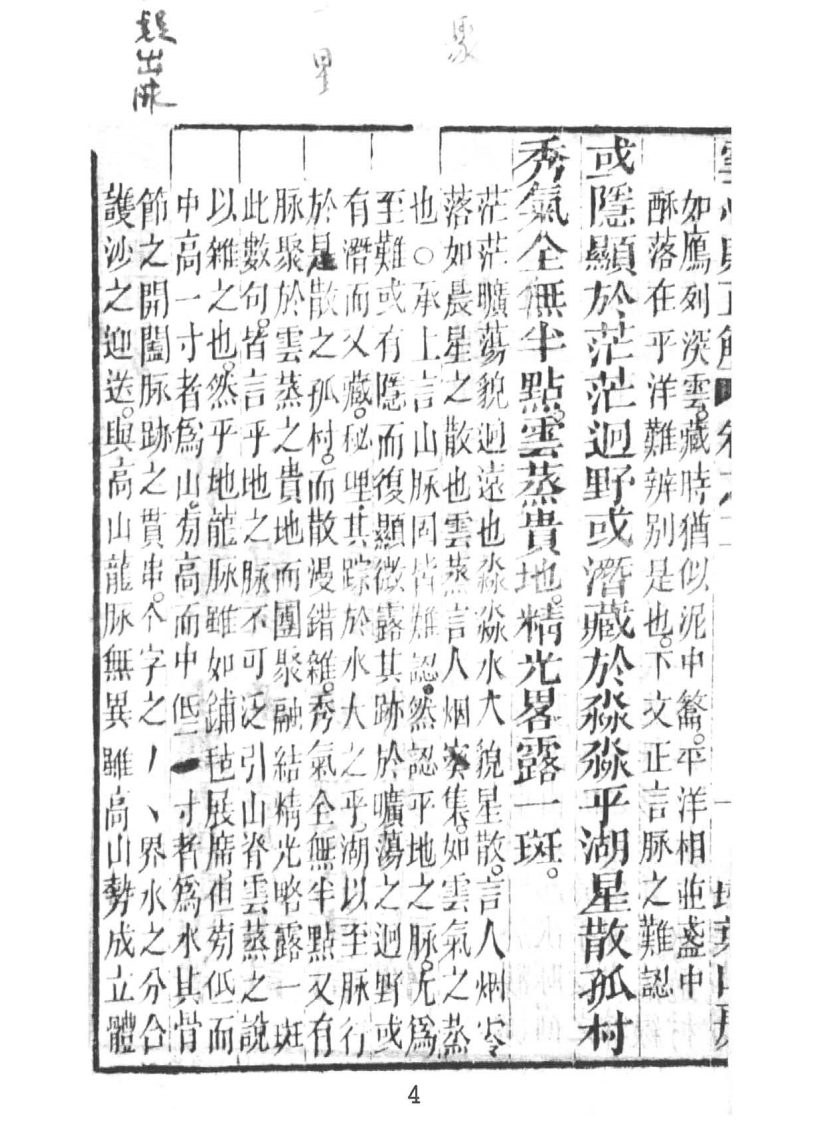 星
如鴈列淡雲。藏時猶似泥中鱉。平洋相並盞中
酥落在平洋難辨别是也。下文正言脉之難認
或隱顯於茫茫迥野或潛藏於淼淼平湖星散孤村
秀氣全無半點。雲蒸貴地。精光畧露一斑。
茫茫曠蕩貌迥遠也淼淼水大貌星散。言人烟零
落如晨星之散也雲蒸言人烟集。如雲氣之蒸
也○承上言山脉固皆難認。然認平地之脉。尤爲
至難或有隱而復顯微露其跡於曠蕩之迥野或
有潛而又藏。秘哩其踪於水大之平。湖以至脉行
於是散之孤村。而散漫錯雜。秀氣全無半點又有
脉聚於雲蒸之貴地而團聚融結精光略露一斑
此數句。皆言平地之脉不可泛引山脊雲蒸之說
以雜之也。然平地龍脉雖如鋪毡展席。但旁低而
中高一寸者爲山。旁高而中低一寸者爲水其骨
節之開闔脉跡之貫串。个字之丿丶界水之分合
護沙之迎送。與高山龍脉無異雖高山勢成立體
4